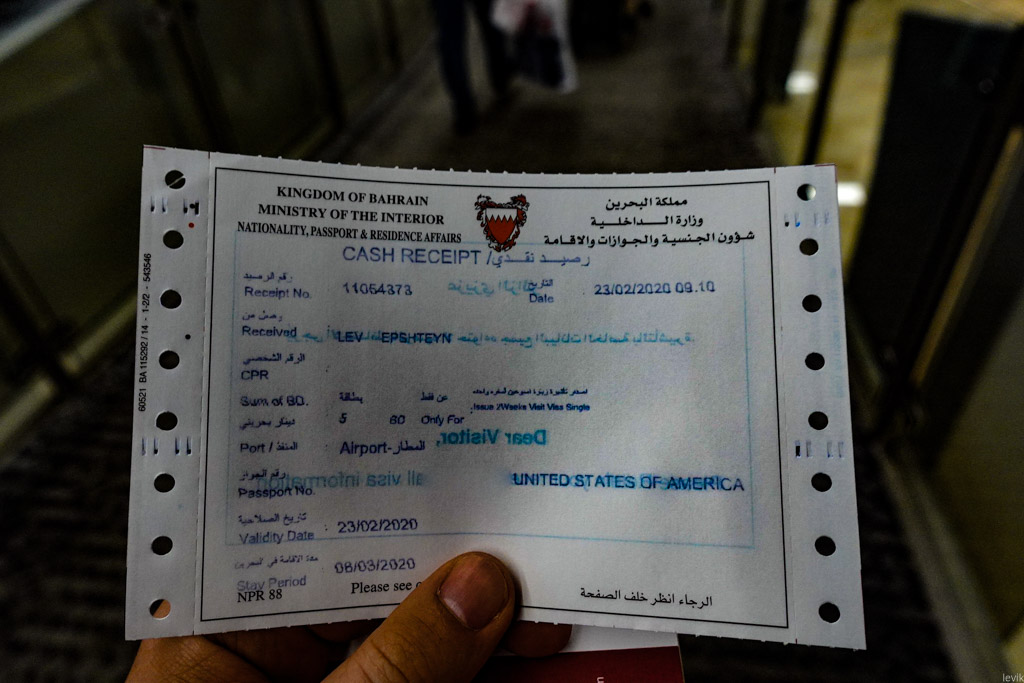 KINGDOM OF BAHRAIN
MINISTRY OF THE INTERIOR
NATIONALITY, PASSPORT & RESIDENCE AFFAIRS
مملكة البحرين
وزارة الـداخلـية
شؤون الجنسية والجوازات والاقامة
CASH RECEIPT / رصيد نقدي
رقم الرصيد
Receipt No. 11054373
التاريخ
Date 23/02/2020 09.10
وصل من
Received LEV EPSHTEYN
الرقم الشخصي
CPR :
Sum of BD.
دينار بحريني : 5
60 Only For
Issue 2Weeks Visit Visa Single
Port / المنفذ : Airport-المطار
رقم الجواز
Passport No.
UNITED STATES OF AMERICA
تاريخ الصلاحية
Validity Date : 23/02/2020
مدة الاقامة في البحرين
Stay Period : 08/03/2020
NPR 88
Please see
الرجاء انظر خلف الصفحة
Dear Visitor,
all visa information
60521 BA 115292 / 14 - 1-2/2 - 543546
levik